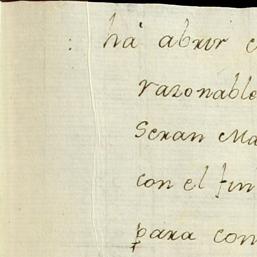 ha abrir
razonable
Seran
con el fin
para con